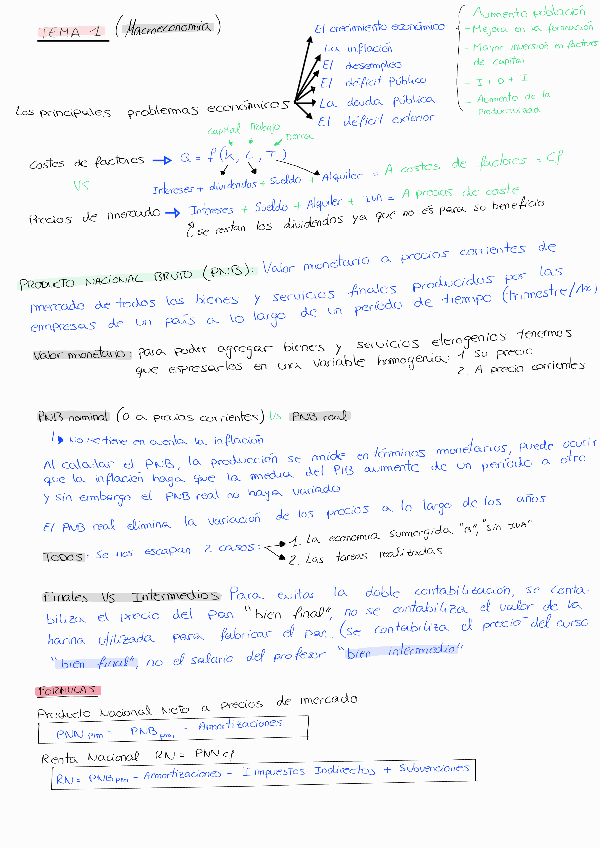 TEMA 1 (Macroeconomía)
Los principales problemas económicos
El crecimiento económico
La inflación
El desempleo
El déficit público
La deuda pública
El déficit exterior
Aumento población
- Mejora en la formación
- Mayor inversión en factores
de capital
- I + D + I
- Aumento de la
Productividad
Capital Trabajo
Tierra
Costes de factores → Q = f (K, L, T)
Intereses + dividendos + Sueldo + Alquiler = A costes de factores = Cf
VS
Precios de mercado → Intereses + Sueldo + Alquiler + IVA = A precios de coste
se restan los dividendos ya que no es para su beneficio
PRODUCTO NACIONAL BRUTO (PNB): Valor monetario a precios corrientes de
mercado de todos los bienes y servicios finales producidos por las
empresas de un país a lo largo de un período de tiempo (trimestre/año)
Valor monetario: para poder agregar bienes y servicios eterogenios tenemos
que espresarlos en una variable homogenia: 1 Su precio
2 A precio corrientes
PNB nominal (o a precios corrientes) Vs PNB real
No se tiene en cuenta la inflación
Al calcular el PNB, la producción se mide en términos monetarios, puede ocurrir
que la inflación haga que la medida del PIB aumente de un período a otro
y sin embargo el PNB real no haya variado
El PNB real elimina la variación de los precios a lo largo de los años
Todos: Se nos escapan 2 casos:
1. La economía sumergida "B", "sin IVA"
2. Las tareas realizadas
Finales Vs Intermedios Para evitar la doble contabilización, se conta-
biliza el precio del pan "bien final", no se contabiliza el valor de la
harina utilizada para fabricar el pan. (se contabiliza el precio del curso
"bien final", no el salario del profesor "bien intermedio"
FORMULAS
Producto Nacional Neto a precios de mercado
PNN pm = PNB pm - Amortizaciones
Renta Nacional RN = PNN cf
RN = PNB pm - Amortizaciones - Impuestos Indirectos + Subvenciones